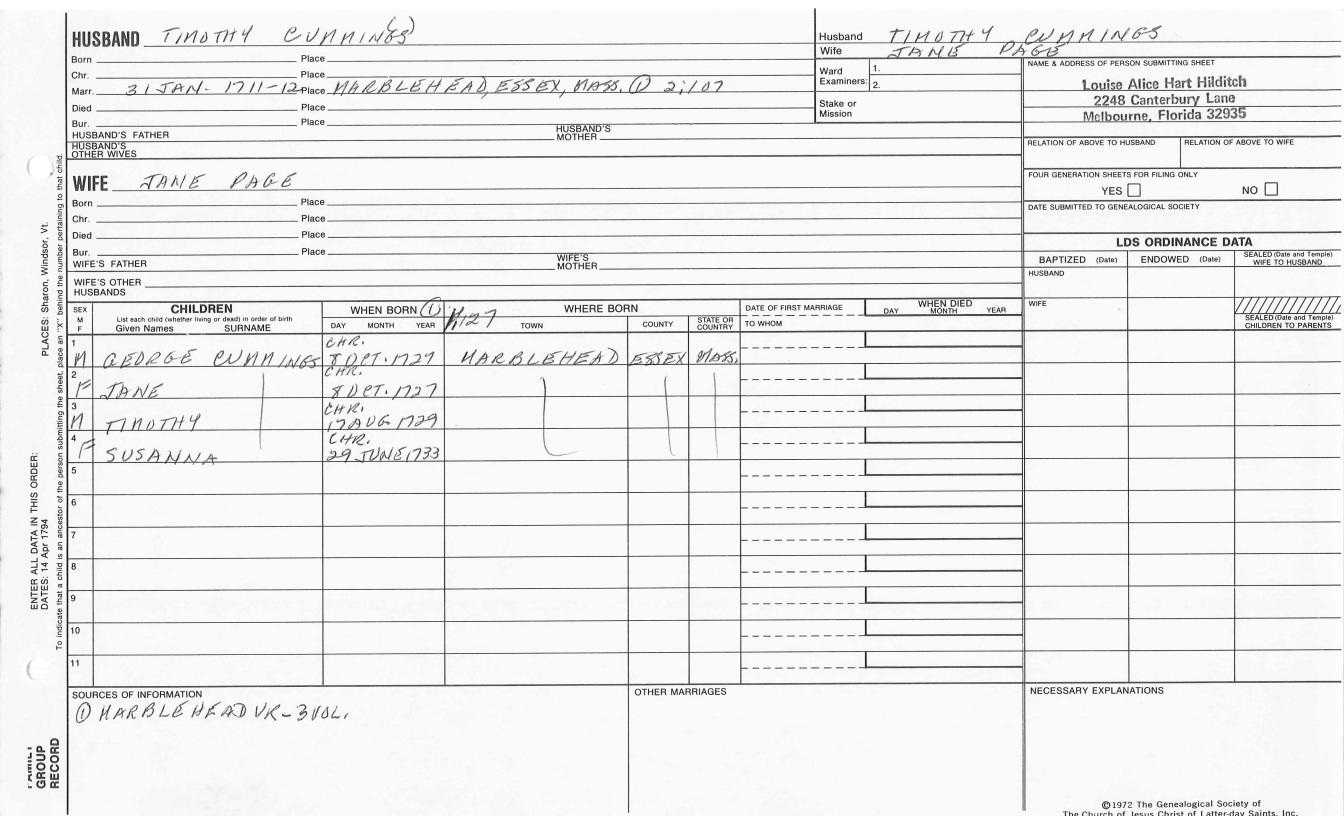 HUSBAND TIMOTHY CUMMING(S)
Born Place
Chr. Place
Marr. 31 JAN- 1711-12 Place MARBLEHEAD, ESSEX, MASS. ① 2:107
Died Place
Bur. Place
HUSBAND'S FATHER HUSBAND'S MOTHER
HUSBAND'S OTHER WIVES
WIFE JANE PAGE
Born Place
Chr. Place
Died Place
Bur. Place
WIFE'S FATHER WIFE'S MOTHER
WIFE'S OTHER HUSBANDS
Husband TIMOTHY CUMMINGS
Wife JANE PAGE
Ward Examiners: 1.
2.
Stake or Mission
NAME & ADDRESS OF PERSON SUBMITTING SHEET
Louise Alice Hart Hilditch
2248 Canterbury Lane
Melbourne, Florida 32935
RELATION OF ABOVE TO HUSBAND RELATION OF ABOVE TO WIFE
FOUR GENERATION SHEETS FOR FILING ONLY
YES NO
DATE SUBMITTED TO GENEALOGICAL SOCIETY
LDS ORDINANCE DATA
BAPTIZED (Date) ENDOWED (Date) SEALED (Date and Temple) WIFE TO HUSBAND
HUSBAND
WIFE
SEALED (Date and Temple) CHILDREN TO PARENTS
SEX M F
CHILDREN
List each child (whether living or dead) in order of birth
Given Names SURNAME
WHEN BORN ①
DAY MONTH YEAR
1:127
WHERE BORN
TOWN COUNTY STATE OR COUNTRY
DATE OF FIRST MARRIAGE
TO WHOM
WHEN DIED
DAY MONTH YEAR
1 M GEORGE CUMMINGS CHR. 8 OCT. 1727 MARBLEHEAD ESSEX MASS.
2 F JANE CHR. 8 OCT. 1727
3 M TIMOTHY CHR. 17 AUG 1729
4 F SUSANNA CHR. 29 JUNE 1733
5
6
7
8
9
10
11
SOURCES OF INFORMATION
① MARBLEHEAD VR-3 VOL.
OTHER MARRIAGES
NECESSARY EXPLANATIONS
©1972 The Genealogical Society of
The Church of Jesus Christ of Latter-day Saints, Inc.
ENTER ALL DATA IN THIS ORDER:
DATES: 14 Apr 1794 PLACES: Sharon, Windsor, Vt.
To indicate that a child is an ancestor of the person submitting the sheet, place an "X" behind the number pertaining to that child.
FAMILY
GROUP
RECORD